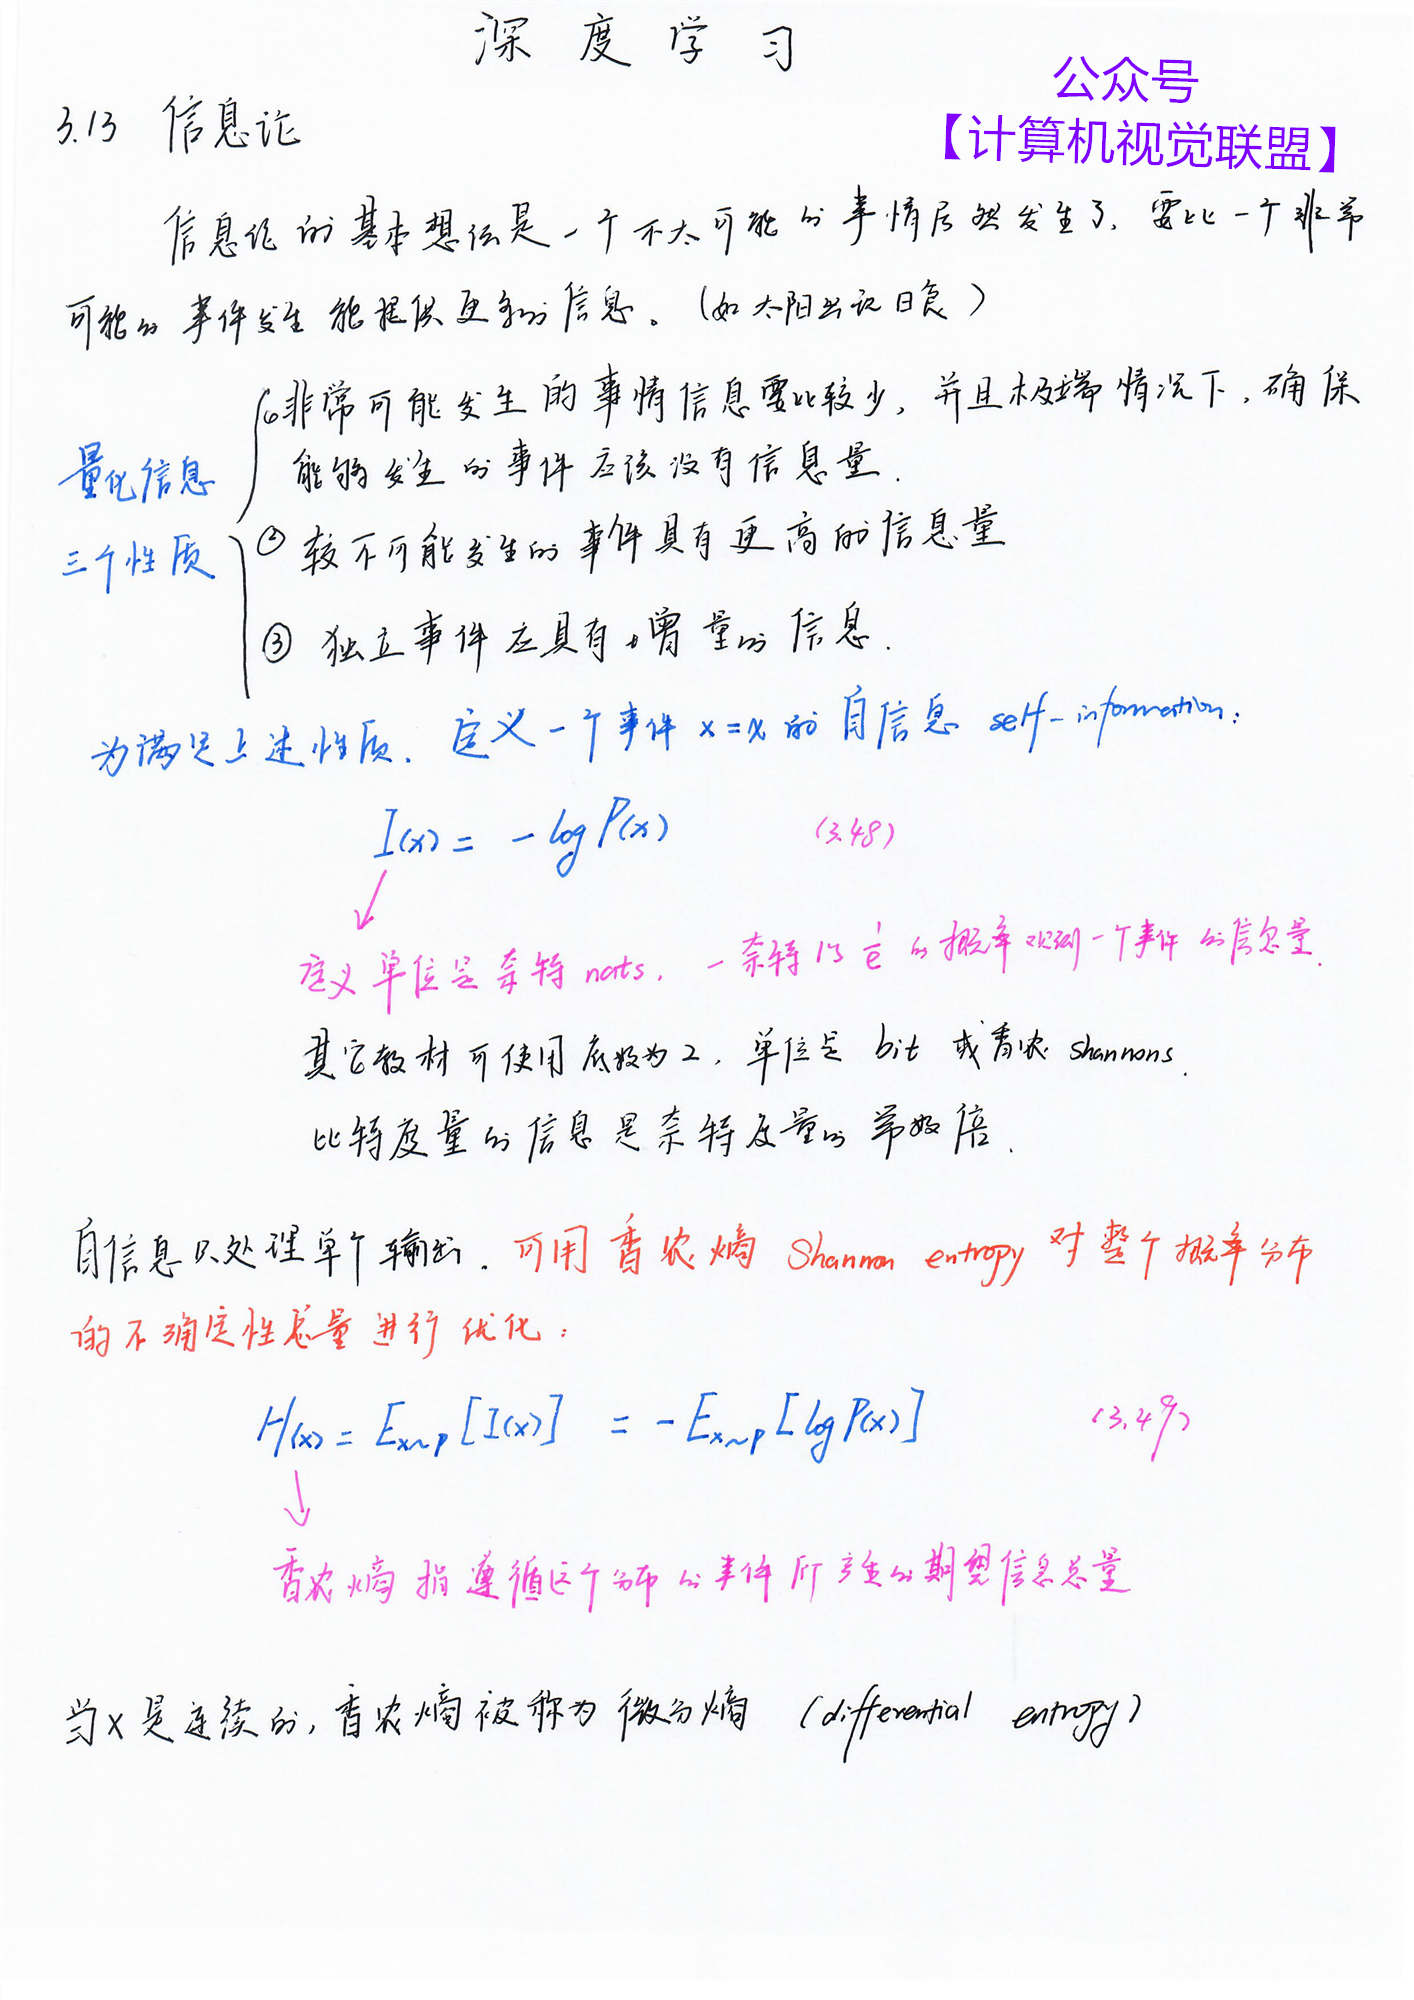 深度学习
公众号
【计算机视觉联盟】
3.13 信息论
信息论的基本想法是一个不太可能的事情居然发生了，要比一个非常
可能的事件发生能提供更多的信息。（如太阳出说日食）
量化信息
三个性质
① 非常可能发生的事情信息要比较少，并且极端情况下，确保
能够发生的事件应该没有信息量．
② 较不可能发生的事件具有更高的信息量
③ 独立事件应具有增量的信息．
为满足上述性质．定义一个事件 x=x 的自信息 self-information：
I(x) = -log P(x) (3.48)
定义单位是奈特 nats，一奈特 1/e 的概率观测一个事件的信息量．
其它教材可使用底数为2，单位是 bit 或香农 shannons．
比特度量的信息是奈特度量的常数倍．
自信息只处理单个输出．可用香农熵 Shannon entropy 对整个概率分布
的不确定性总量进行优化：
H(x) = Ex~P[I(x)] = -Ex~P[log P(x)] (3.49)
香农熵指遵循这个分布的事件所产生的期望信息总量
当x是连续的，香农熵被称为微分熵（differential entropy）